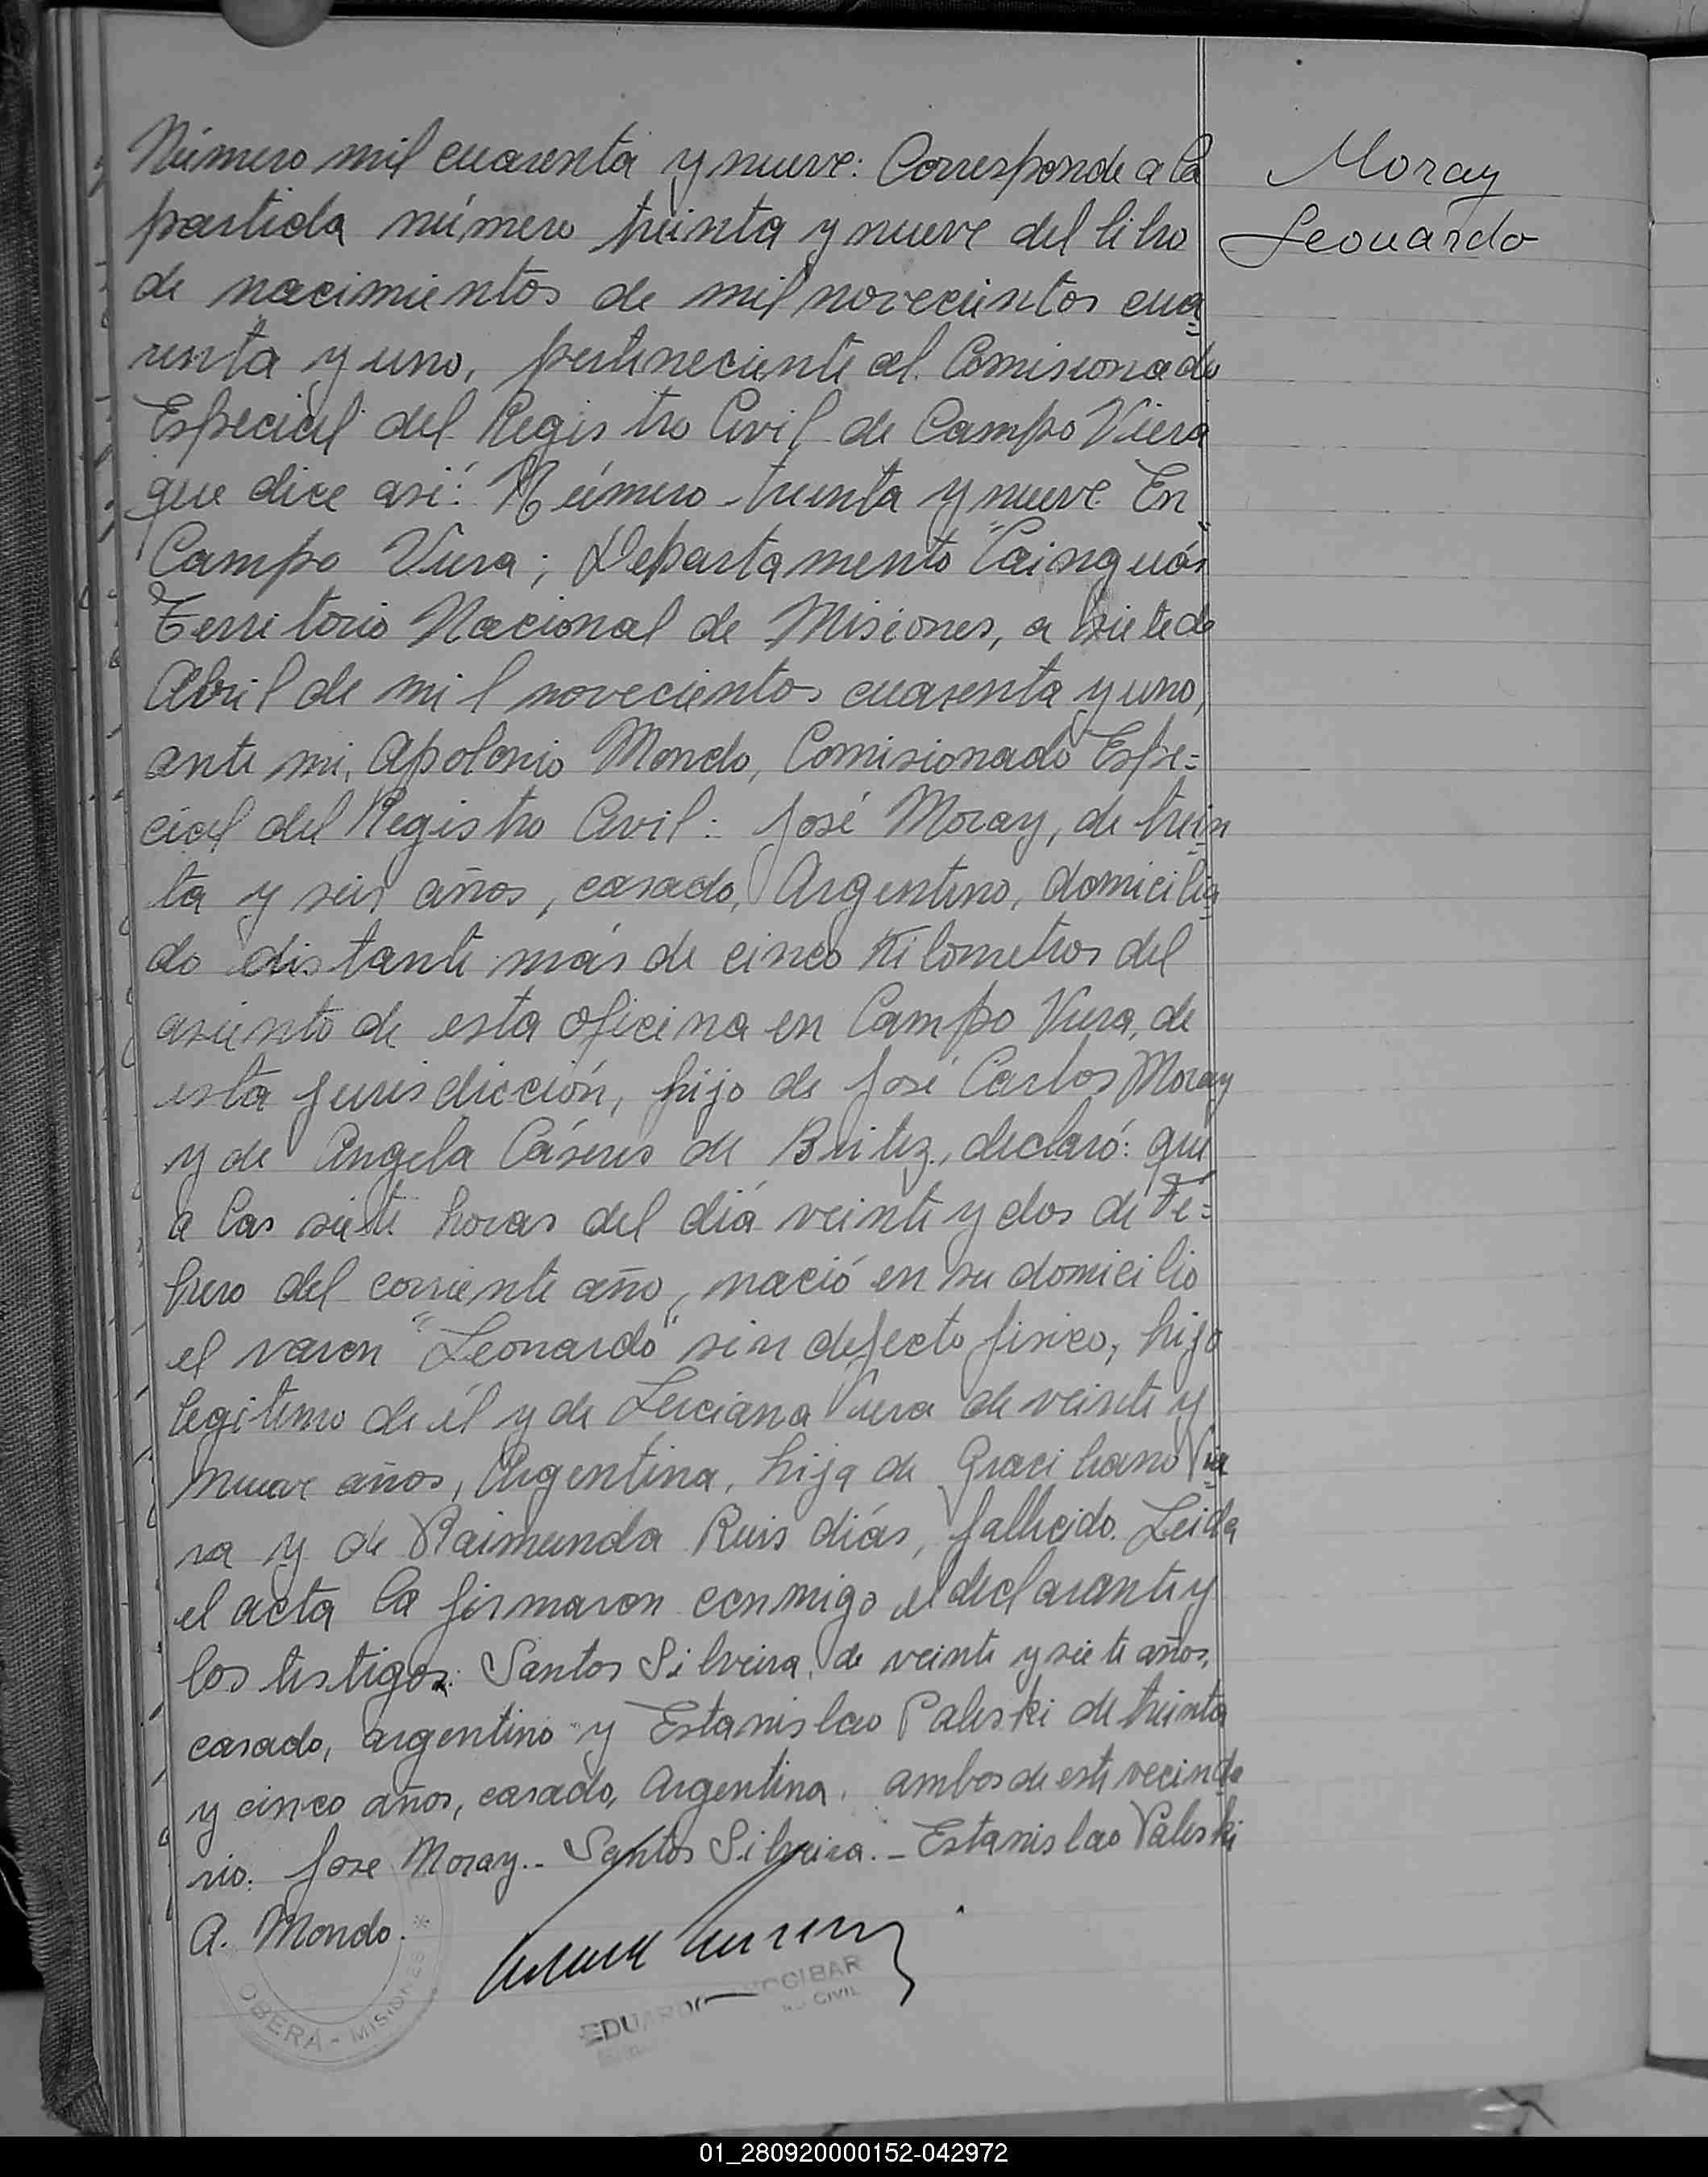 Número mil cuarenta y nueve: Corresponde a la
partida número treinta y nueve del libro
de nacimientos de mil novecientos cua=
renta y uno, perteneciente al Comisionado
Especial del Registro Civil de Campo Viera
que dice así: Número treinta y nueve. En
Campo Viera; Departamento "Cainguás"
Territorio Nacional de Misiones, a siete de
Abril de mil novecientos cuarenta y uno,
ante mi, Apolonio Mondo, Comisionado Espe=
cial del Registro Civil: José Moray, de trein=
ta y seis años, casado, Argentino, domicilia=
do distante más de cinco Kilometros del
asiento de esta oficina en Campo Viera, de
esta jurisdicción, hijo de José Carlos Moray
y de Angela Cáseres de Britez, declaró: que
a las siete horas del diá veinte y dos de Fe=
brero del corriente año, nació en su domicilio
el varon "Leonardo" sin defecto fisico, hijo
legitimo de él y de Luciana Viera de veinte y
nueve años, Argentina, hija de Graciliano Vie=
ra y de Raimunda Ruis diás, fallecido. Leida
el acta la firmaron conmigo el declarante y
los testigos: Santos Silveira, de veinte y siete años,
casado, argentino y Estanislao Paleski de treinta
y cinco años, casado, Argentina. ambos de este vecinda
rio: Jose Moray.- Santos Silveira.- Estanislao Paleski
A. Mondo.
Moray
Leonardo
OBERÁ - MISIONES *
EDUARDO
CIVIL
01_280920000152-042972